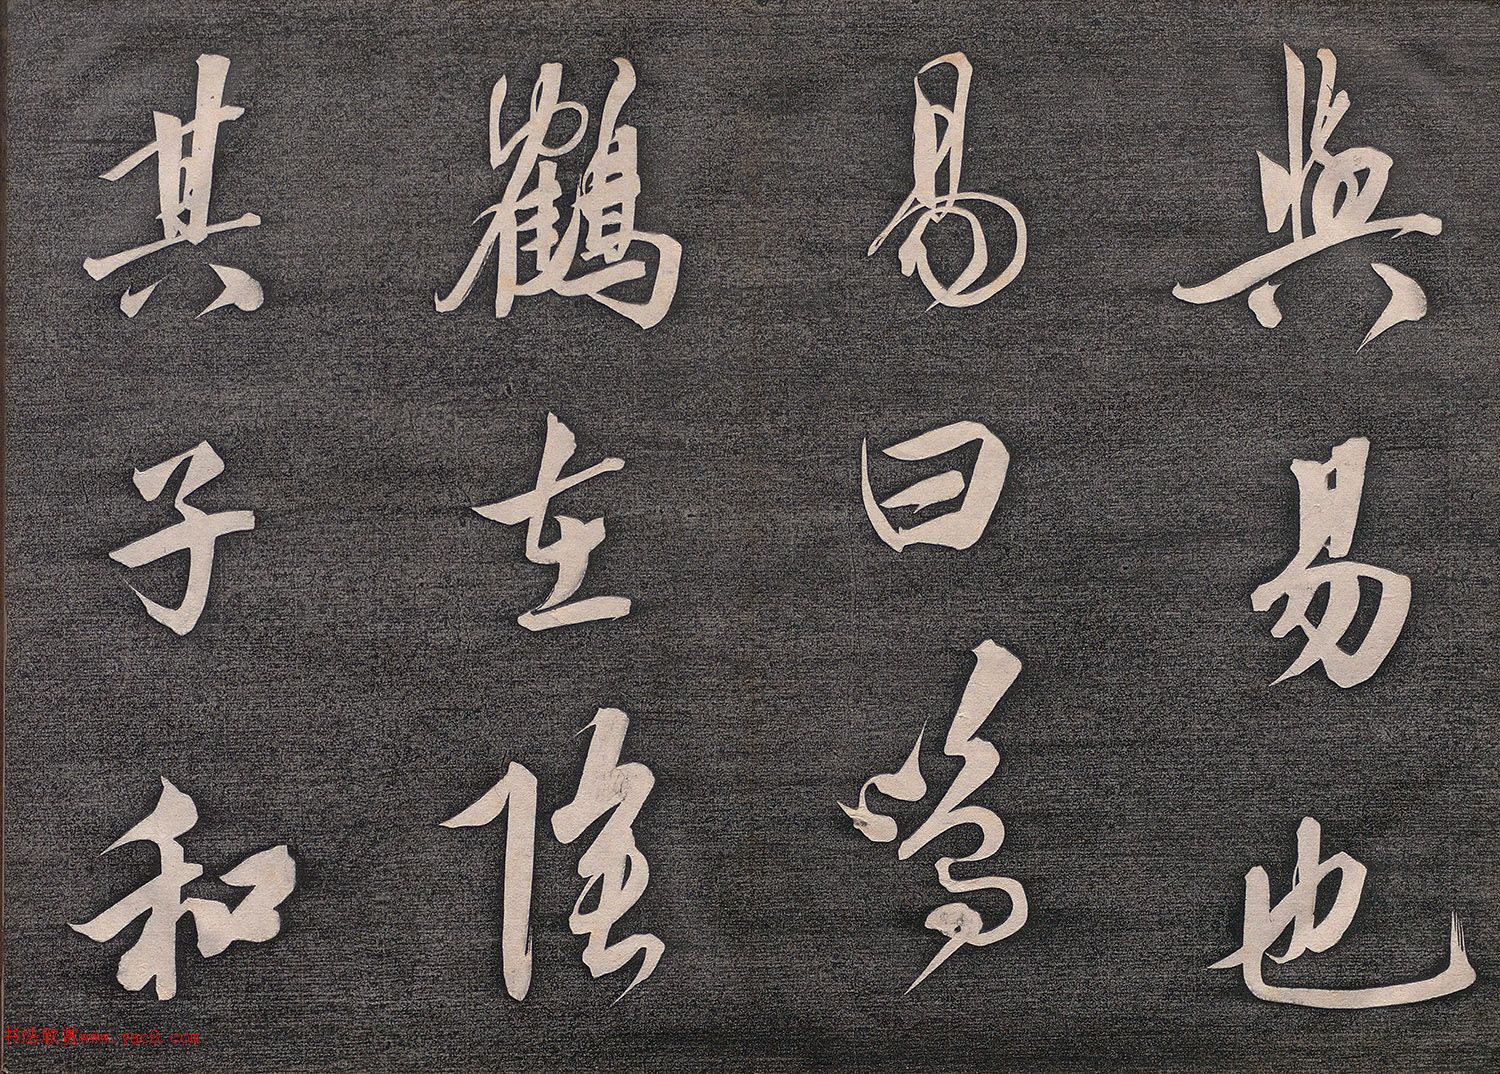 與易也
易曰鳴
鶴在陰
其子和
书法欣赏www.yac8.com